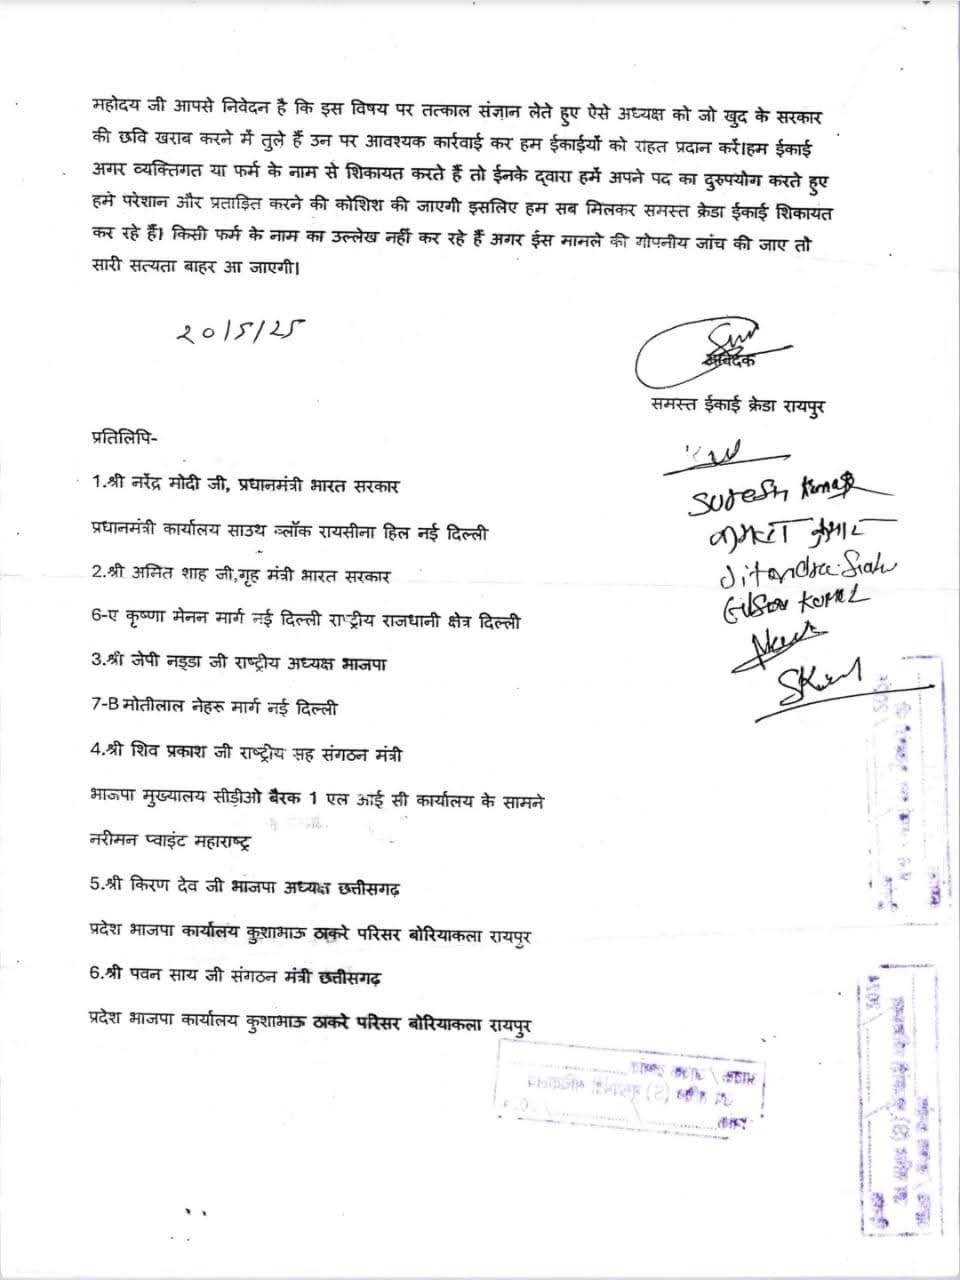 महोदय जी आपसे निवेदन है कि इस विषय पर तत्काल संज्ञान लेते हुए ऐसे अध्यक्ष को जो खुद के सरकार
की छवि खराब करने में तुले हैं उन पर आवश्यक कार्रवाई कर हम ईकाईयों को राहत प्रदान करें।हम ईकाई
अगर व्यक्तिगत या फर्म के नाम से शिकायत करते हैं तो ईनके द्वारा हमें अपने पद का दुरुपयोग करते हुए
हमे परेशान और प्रताड़ित करने की कोशिश की जाएगी इसलिए हम सब मिलकर समस्त क्रेडा ईकाई शिकायत
कर रहे हैं। किसी फर्म के नाम का उल्लेख नहीं कर रहे हैं अगर ईस मामले की गोपनीय जांच की जाए तो
सारी सत्यता बाहर आ जाएगी।
20/5/25
आवेदक
समस्त ईकाई क्रेडा रायपुर
प्रतिलिपि-
1.श्री नरेंद्र मोदी जी, प्रधानमंत्री भारत सरकार
Suresh Kumar
प्रधानमंत्री कार्यालय साउथ ब्लॉक रायसीना हिल नई दिल्ली
2.श्री अमित शाह जी,गृह मंत्री भारत सरकार
6-ए कृष्णा मेनन मार्ग नई दिल्ली राष्ट्रीय राजधानी क्षेत्र दिल्ली
3.श्री जेपी नड्डा जी राष्ट्रीय अध्यक्ष भाजपा
7-B मोतीलाल नेहरू मार्ग नई दिल्ली
4.श्री शिव प्रकाश जी राष्ट्रीय सह संगठन मंत्री
भाजपा मुख्यालय सीडीओ बैरक 1 एल आई सी कार्यालय के सामने
नरीमन प्वाइंट महाराष्ट्र
5.श्री किरण देव जी भाजपा अध्यक्ष छत्तीसगढ़
प्रदेश भाजपा कार्यालय कुशाभाऊ ठाकरे परिसर बोरियाकला रायपुर
6.श्री पवन साय जी संगठन मंत्री छत्तीसगढ़
प्रदेश भाजपा कार्यालय कुशाभाऊ ठाकरे परिसर बोरियाकला रायपुर